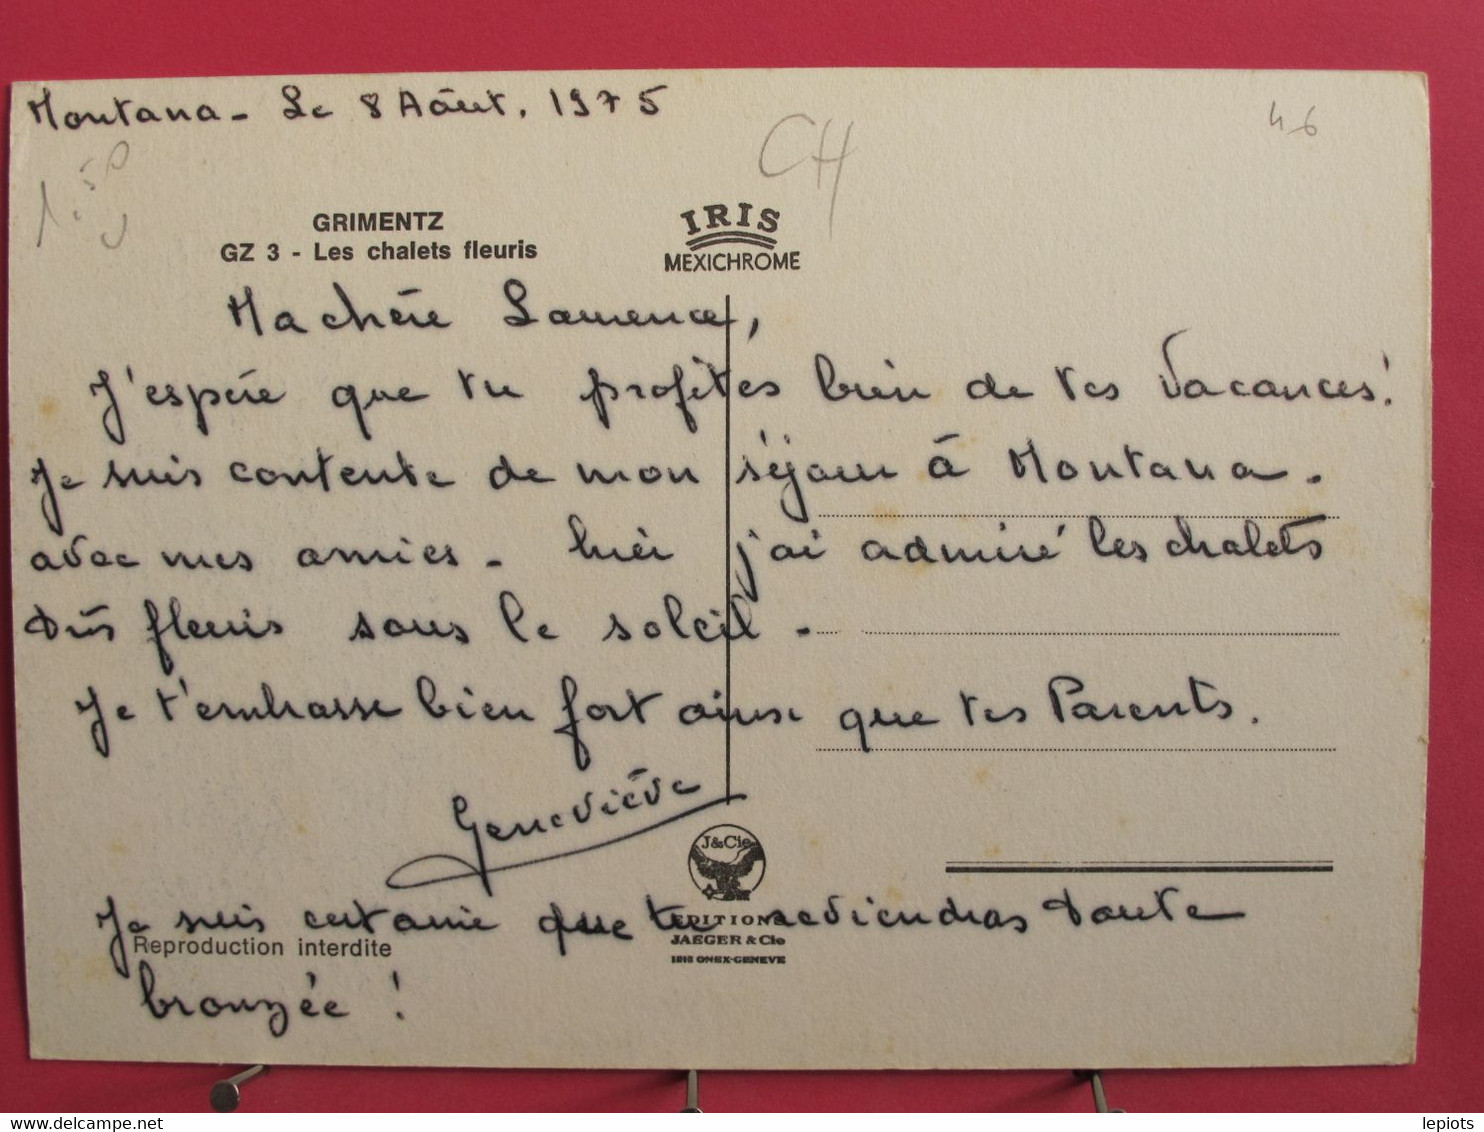 Montana - Le 8 Août. 1975
CH
46
GRIMENTZ
GZ 3 - Les chalets fleuris
IRIS
MEXICHROME
Ma chère Laurence,
J'espère que tu profites bien de tes Vacances!
Je suis contente de mon séjour à Montana.
avec mes amies. hier j'ai admiré les chalets
très fleuris sous le soleil.
Je t'embrasse bien fort ainsi que tes Parents.
Geneviève
J&Cie
Je suis certaine que tu reviendras toute
EDITIONS
JAEGER & Cie
1213 ONEX-GENEVE
Reproduction interdite
bronzée !
lepiots
delcampe.net